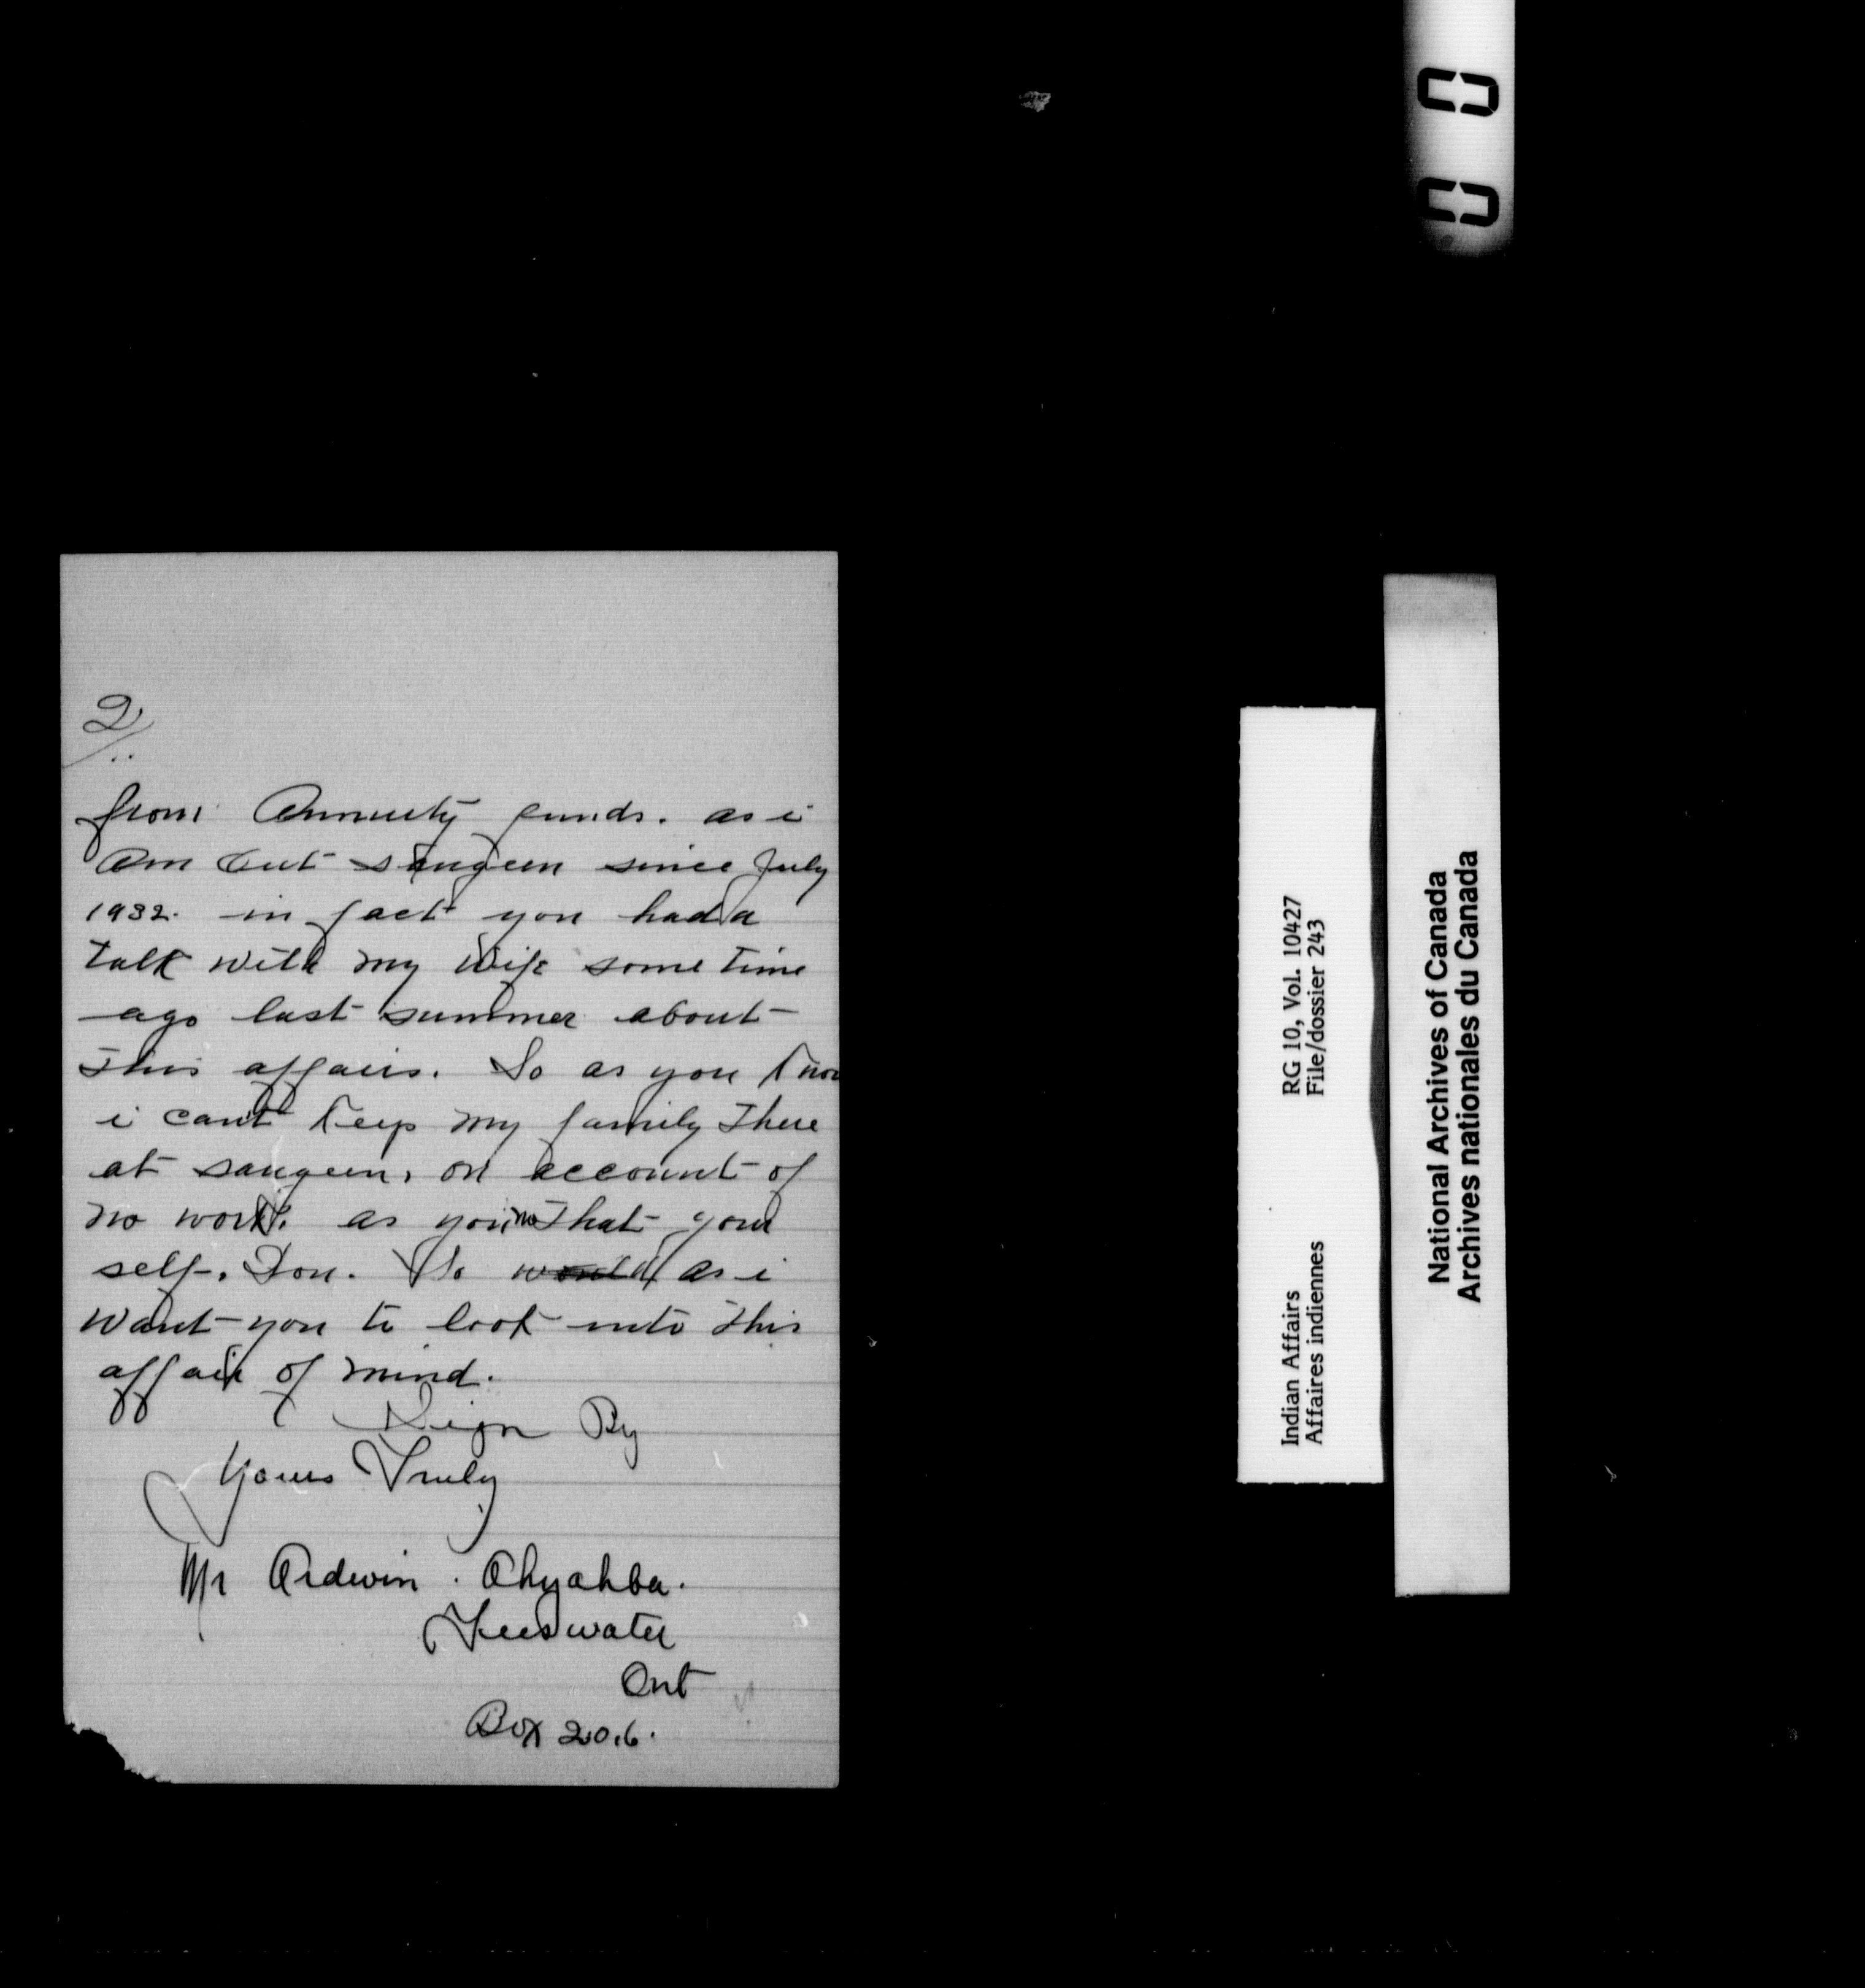 2/..
from Annuity funds. as i
am out saugeen since July
1932. in fact you had a
talk with my wife some time
ago last summer about
this affairs. So as you know
i cant keep my family there
at saugeen, on account of
no work. as you no that your
self. Don. So would as i
want you to look into this
affair of mind.
Sign By
Yours Truly
Mr Ardwin. Ahyahba.
Teeswater
Ont
Box 206.
00
Indian Affairs RG 10, Vol. 10427
Affaires indiennes File/dossier 243
National Archives of Canada
Archives nationales du Canada